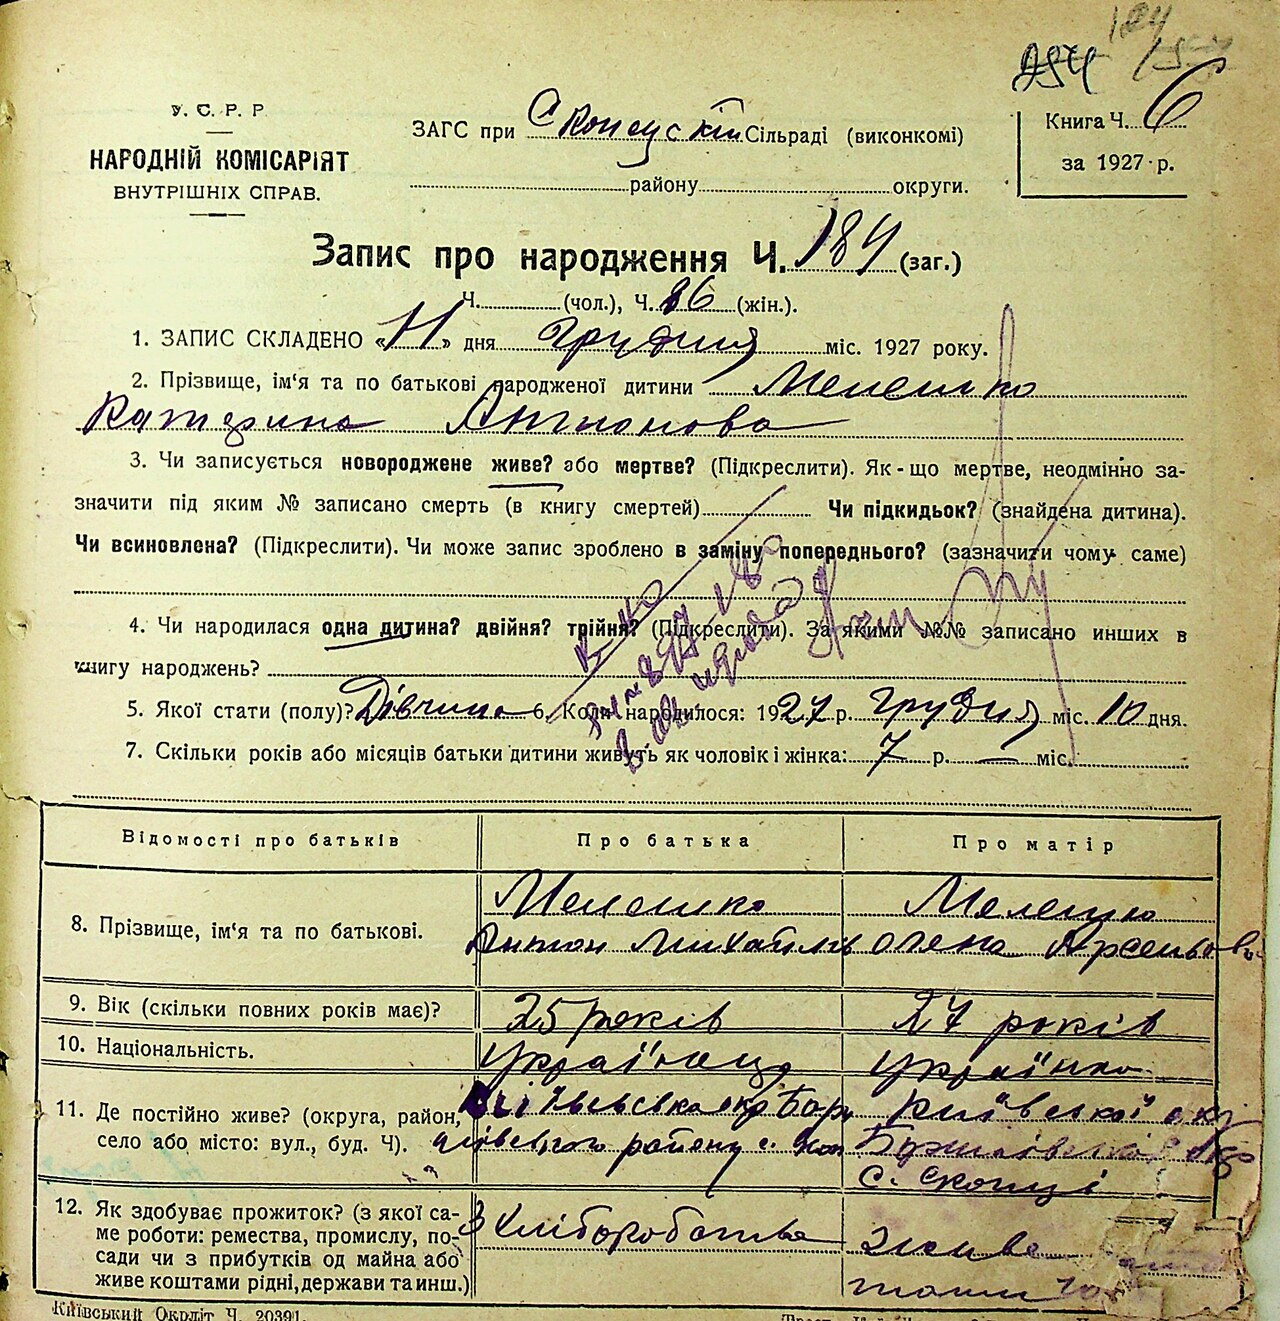 184
У. С. Р. Р
НАРОДНІЙ КОМІСАРІЯТ
ВНУТРІШНІХ СПРАВ.
ЗАГС при Скопецскій Сільраді (виконкомі)
району округи.
Книга Ч. 6
за 1927 р.
Запис про народження Ч. 184 (заг.)
Ч. (чол.), Ч. 86 (жін.).
1. ЗАПИС СКЛАДЕНО « » дня грудня міс. 1927 року.
2. Прізвище, ім‘я та по батькові народженої дитини Мелешко
Катерина Антонова
3. Чи записується новороджене живе? або мертве? (Підкреслити). Як-що мертве, неодмінно за-
значити під яким № записано смерть (в книгу смертей) Чи підкидьок? (знайдена дитина).
Чи всиновлена? (Підкреслити). Чи може запис зроблено в заміну попереднього? (зазначити чому саме)
4. Чи народилася одна дитина? двійня? трійня? (Підкреслити). За якими №№ записано инших в
книгу народжень?
5. Якої стати (полу)? Дівчина 6. Коли народилося: 1927 р. грудня міс. 10 дня.
7. Скільки років або місяців батьки дитини живуть як чоловік і жінка: 7 р. — міс.
Відомості про батьків Про батька Про матір
8. Прізвище, ім‘я та по батькові. Мелешко Антон Михайлів Мелешко Олена Арсеньова
9. Вік (скільки повних років має)? 25 років 27 років
10. Національність. Українец Українка
11. Де постійно живе? (округа, район, Київська окр Бори Київської окр
село або місто: вул., буд. Ч). района с. Бориспівський
с. Скопці
12. Як здобуває прожиток? (з якої са- З хліборобства живе
ме роботи: ремества, промислу, по-
сади чи з прибутків од майна або
живе коштами рідні, держави та инш.)
Київський Окрліт Ч. 20391.